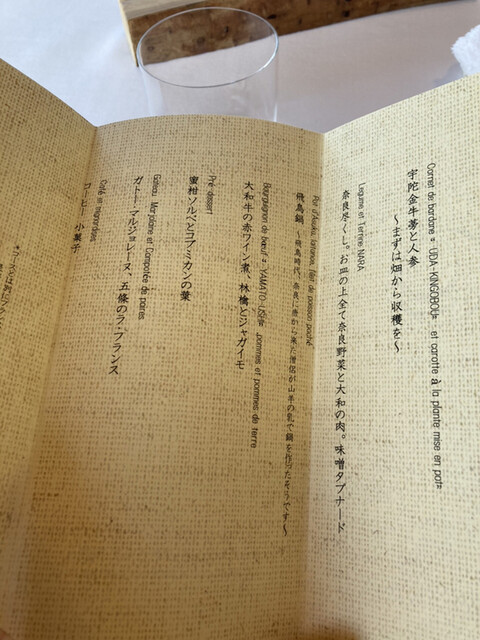 Cornet de bardane « UDA-KINGOBOU» et carotte à la plante mise en pot»
宇陀金牛蒡と人参
～まずは畑から収穫を～
Legume et Terrine NARA
奈良尽くし。お皿の上全て奈良野菜と大和の肉。味噌タプナード
Pot d'Asuka, lantanas, filet de poisson poché
飛鳥鍋 ～飛鳥時代、奈良に唐から来た僧侶が山羊の乳で鍋を作ったそうです～
Bourguignon de bœuf « YAMATO-USHI» pommes et pommes de terre
大和牛の赤ワイン煮、林檎とジャガイモ
Pré-dessert
蜜柑ソルベとコブミカンの葉
Gateau Marjolaine et Compotée de poires
ガトー・マルジョレーヌ、五條のラ・フランス
Café et mignardises
コーヒー 小菓子